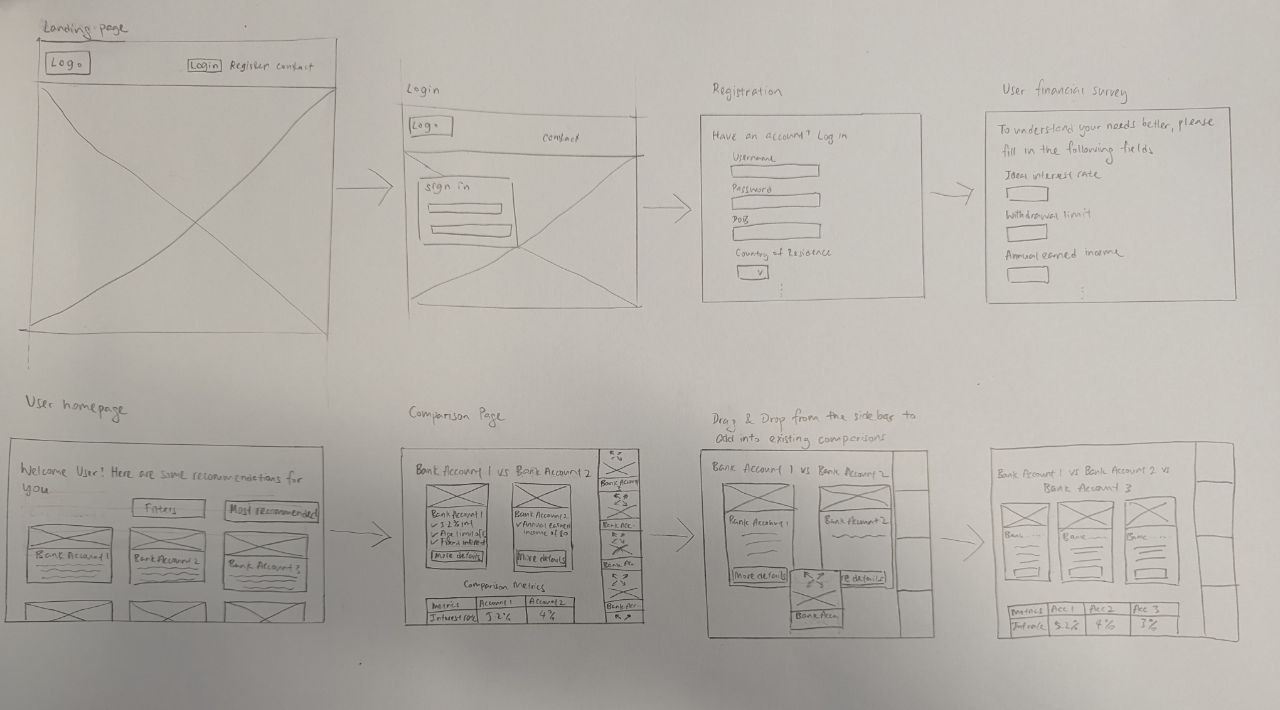 Landing page
Logo
Login Register contact
Login
Logo
contact
sign in
Registration
Have an account? Log in
Username
Password
DOB
Country of Residence
User financial survey
To understand your needs better, please
fill in the following fields
Ideal interest rate
Withdrawal limit
Annual earned income
User homepage
Welcome User! Here are some recommendations for
you
Filters
Most recommended
Bank Account 1
Bank Account 2
Bank Account 3
Comparison Page
Bank Account 1 vs Bank Account 2
Bank Account 1
✓ 5.2% int
✓ Age limit of
✓ Fixed interest
More details
Bank Account 2
✓ Annual earned
income of
More details
Bank Account
Bank Acc-
Bank Ac.
Bank Acc-
Comparison Metrics
Metrics Account 1 Account 2
Interest rate 5.2% 4%
Drag & Drop from the sidebar to
add into existing comparisons
Bank Account 1 vs Bank Account 2
Bank Account 1
More details
Bank Account 2
re details
Bank Acco
Bank Account 1 vs Bank Account 2 vs
Bank Account 3
Bank
Bank
Bank
Metrics Acc 1 Acc 2 Acc 3
Int rate 5.2% 4% 3%